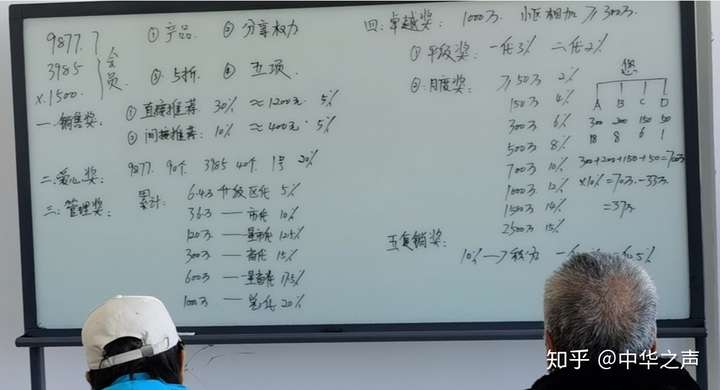 9877.
3985
x.1500
会员
① 产品 ② 分享权力
③ 5折 ④ 五项
一、销售奖: ① 直接推荐 30% ≈1200元. 5%
② 间接推荐: 10% ≈400元. 5%
二、爱心奖: 9877. 90个 3985 40个. 1号 20%
三、管理奖: 累计: 6.4万 升级区代 5%
36万 — 市代 10%
120万 — 12.5%
300万 — 省代 15%
600万 — 17.5%
1000万 — 20%
四、卓越奖: 1000万. 小区相加 ≥300万
① 平级奖: 一代3% 二代2%
② 月度奖: ≥50万 2%
150万 4%
300万 6%
500万 8%
700万 10%
1000万 12%
1500万 14%
2500万 15%
您
A B C D
300 200 150 50
18 8 6 1
300+200+150+50=700万
x10%=70万-33万
=37万
五、复销奖: 10%
知乎 @中华之声